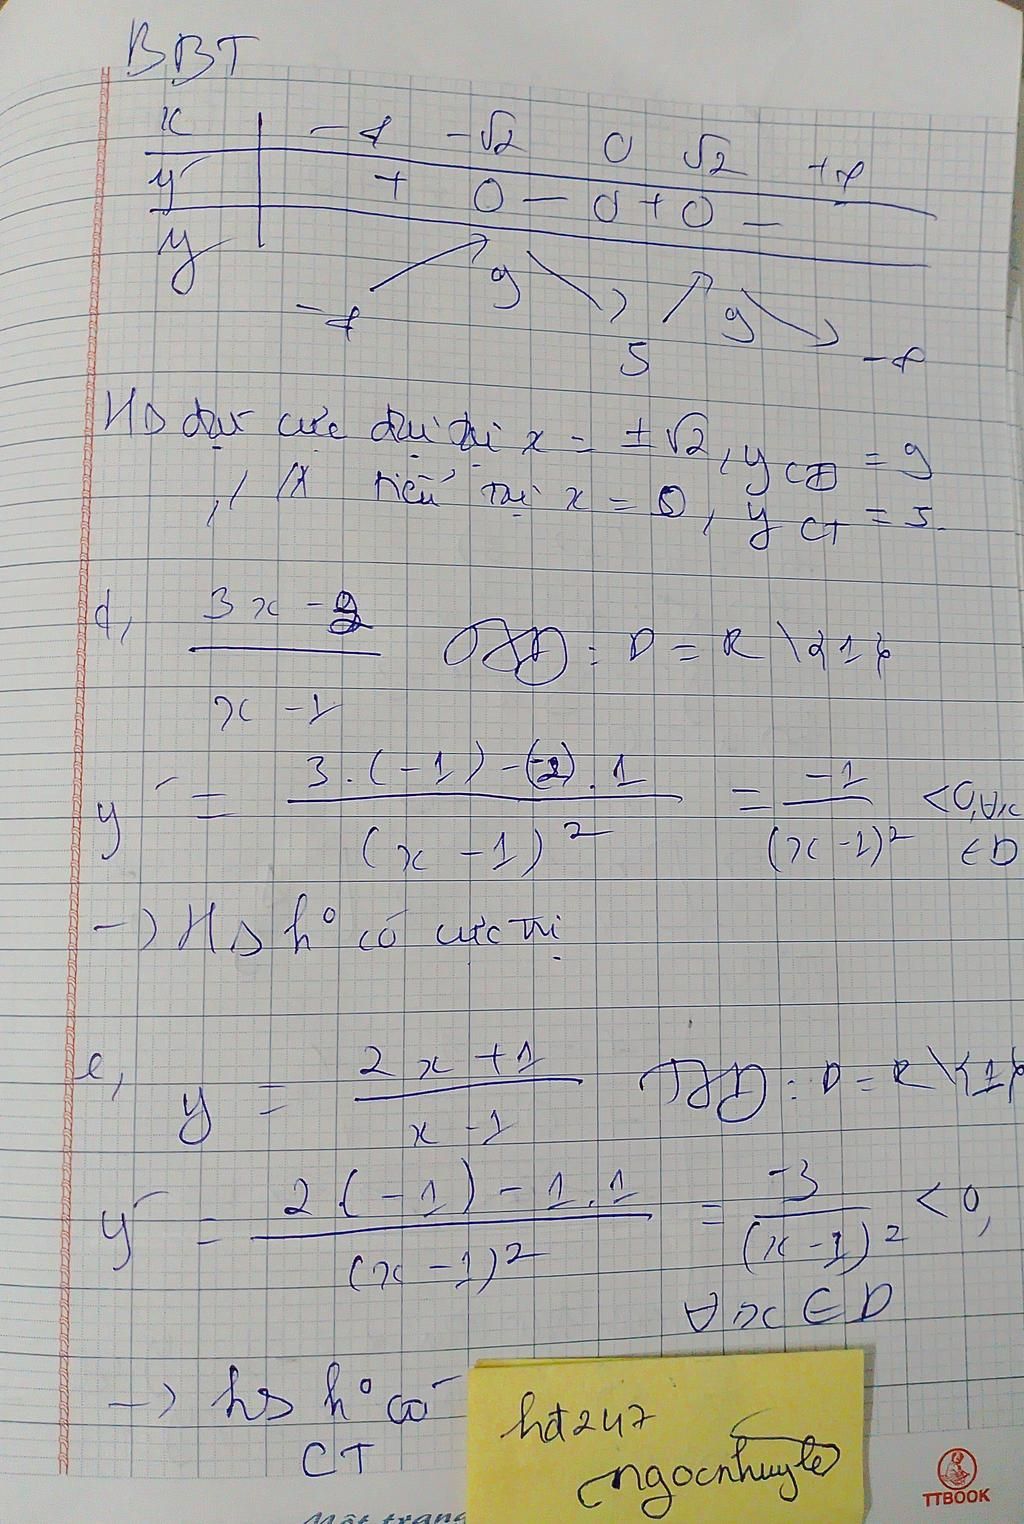 BBT
x | -∞ -√2 0 √2 +∞
y' | + 0 - 0 + 0 -
y
9 9
-∞ 5 -∞
HS đạt cực đại tại x = ±√2, yCĐ = 9
,, // tiểu tại x = 0, yCT = 5.
d, (3x - 2)/(x - 1) TXĐ: D = R \ {1}
y' = (3.(-1) - (-2).1)/(x - 1)² = -1/(x - 1)² < 0, ∀x ∈ D
-> HS k° có cực trị
e, y = (2x + 1)/(x - 1) TXĐ: D = R \ {1}
y' = (2(-1) - 1.1)/(x - 1)² = -3/(x - 1)² < 0,
∀x ∈ D
-> hs k° có
CT
hđ247
ngocnhuyle
TTBOOK